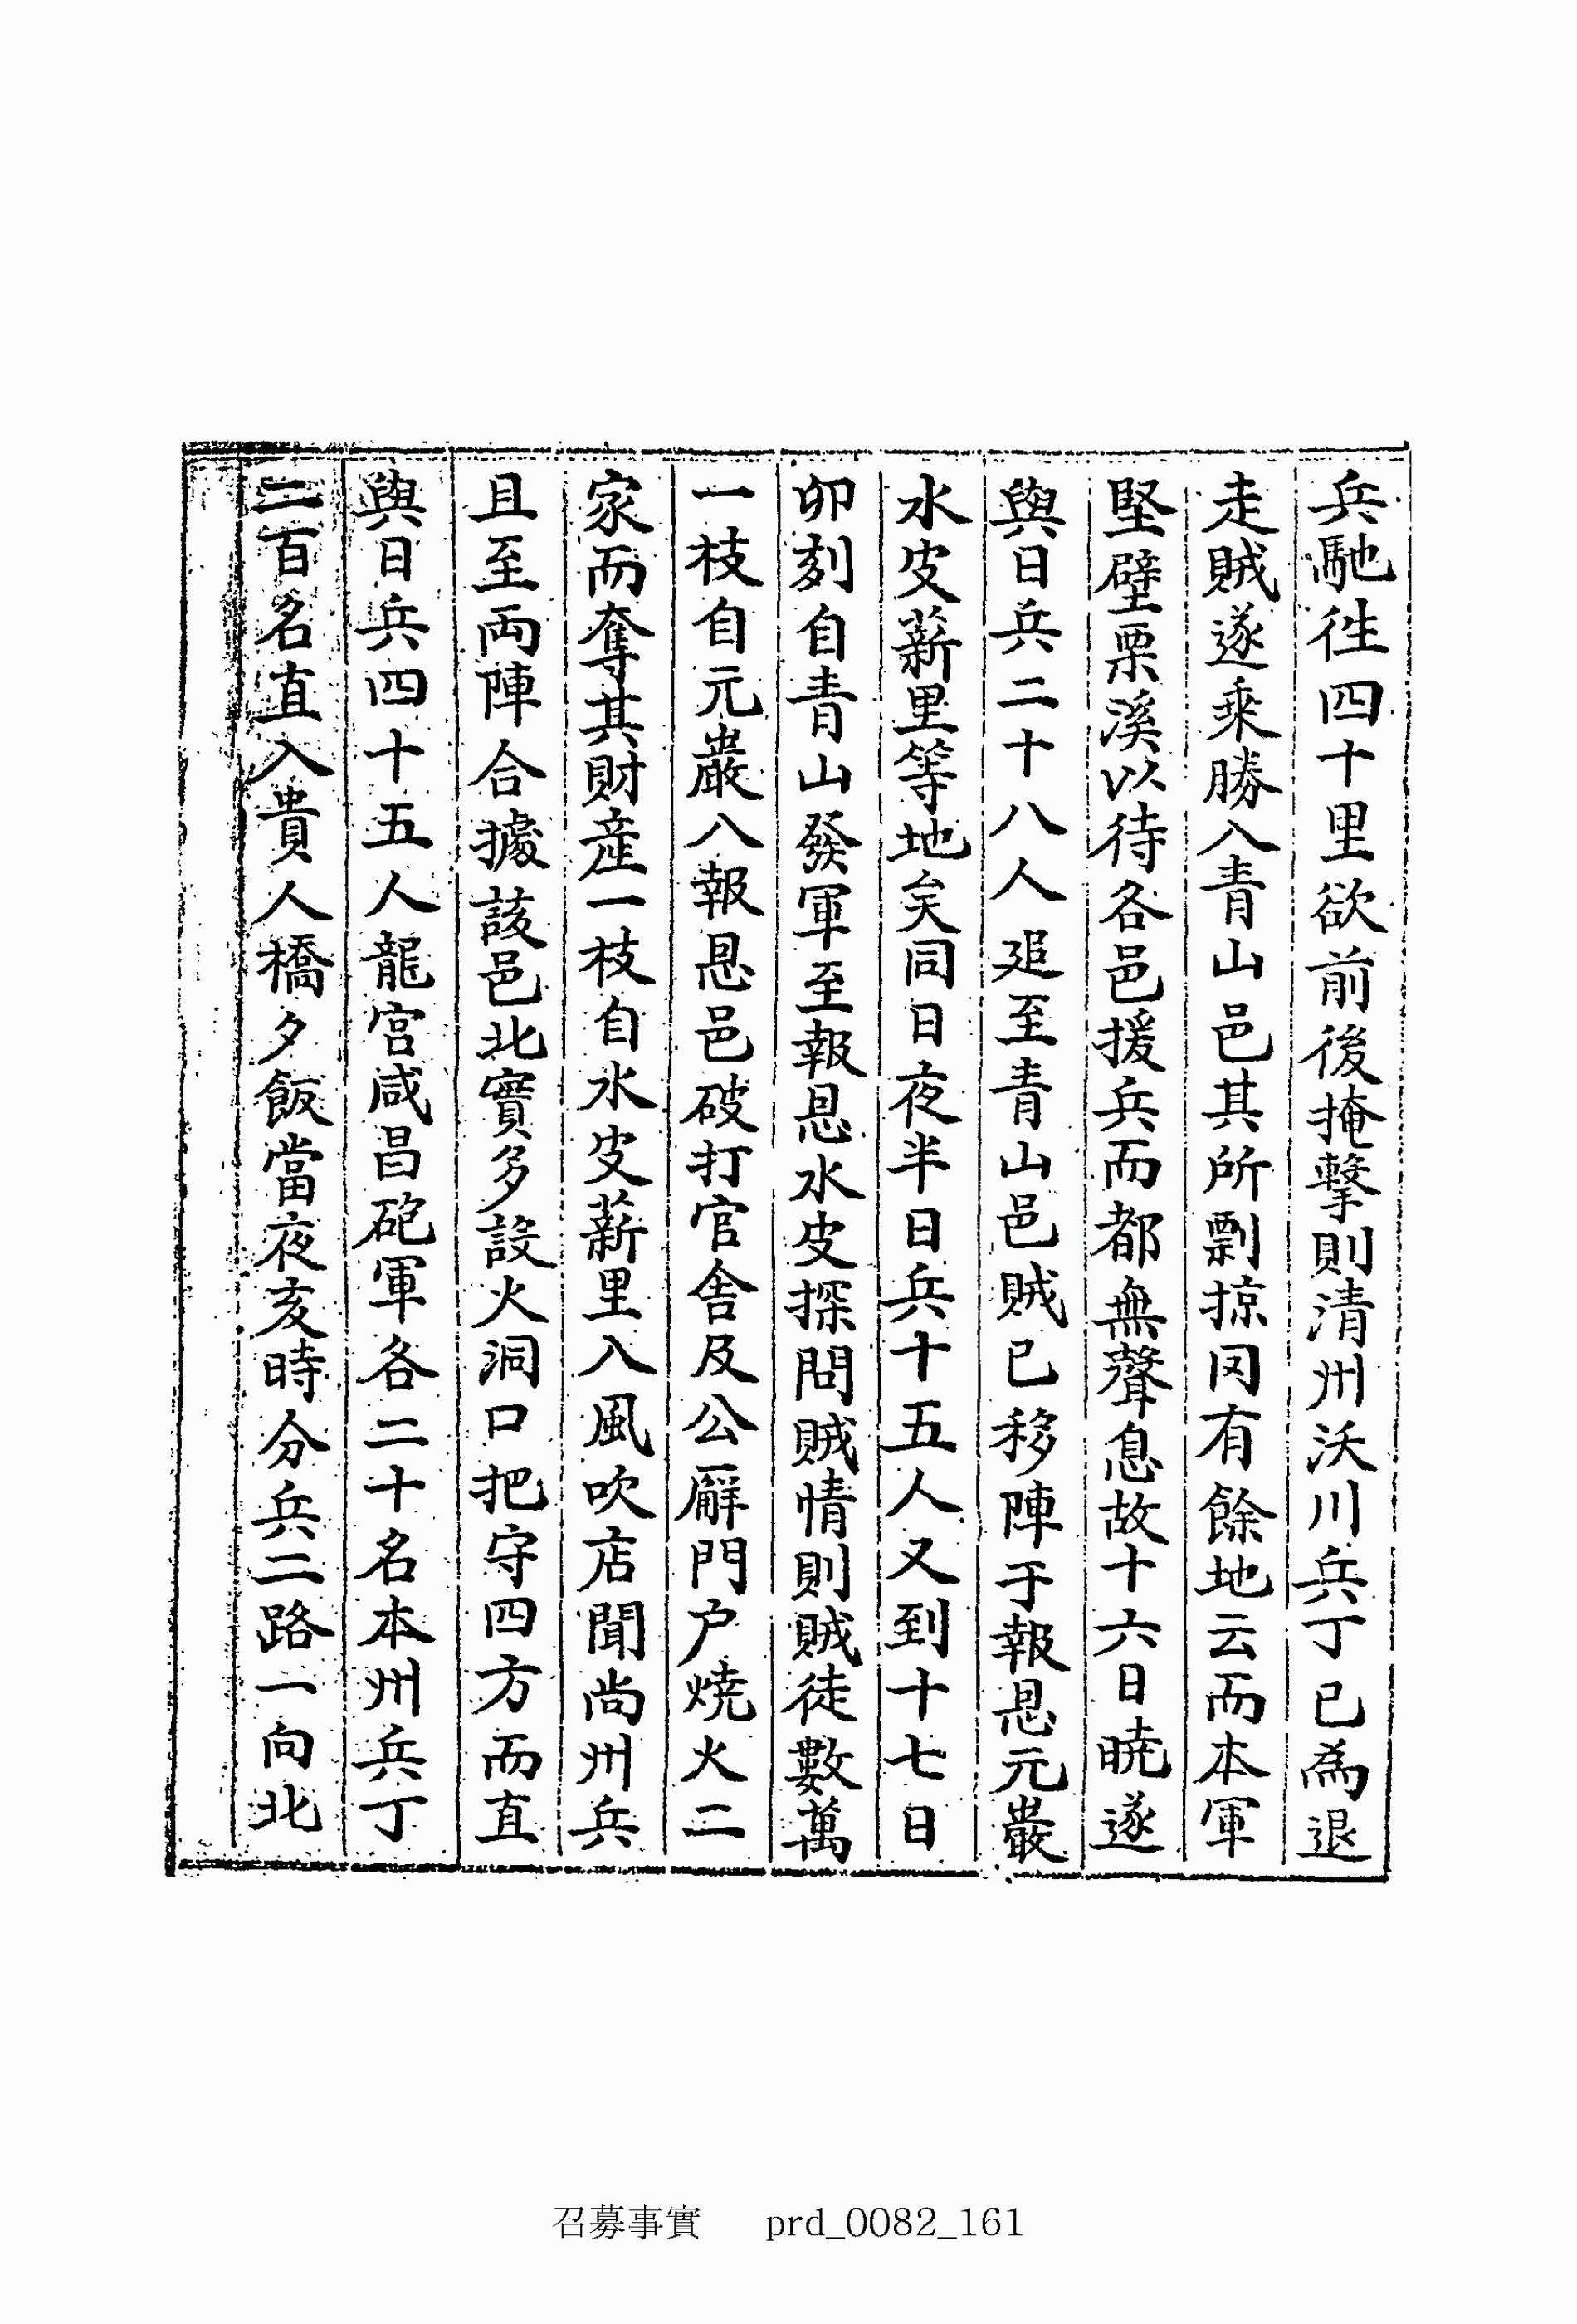 兵馳徃四十里欲前後掩擊則清州沃川兵丁已爲退
走賊遂乘勝入青山邑其所剽掠罔有餘地云而本軍
堅壁栗溪以待各邑援兵而都無聲息故十六日曉遂
與日兵二十八人追至青山邑賊已移陣于報恩元巖
水皮薪里等地矣同日夜半日兵十五人又到十七日
卯刻自青山發軍至報恩水皮探問賊情則賊徒數萬
一枝自元巖入報恩邑破打官舍及公廨門户燒火二
家而奪其財產一枝自水皮薪里入風吹店聞尚州兵
且至両陣合據該邑北實多設火洞口把守四方而直
與日兵四十五人龍宮咸昌砲軍各二十名本州兵丁
二百名直入貴人橋夕飯當夜亥時分兵二路一向北
召募事實 prd_0082_161